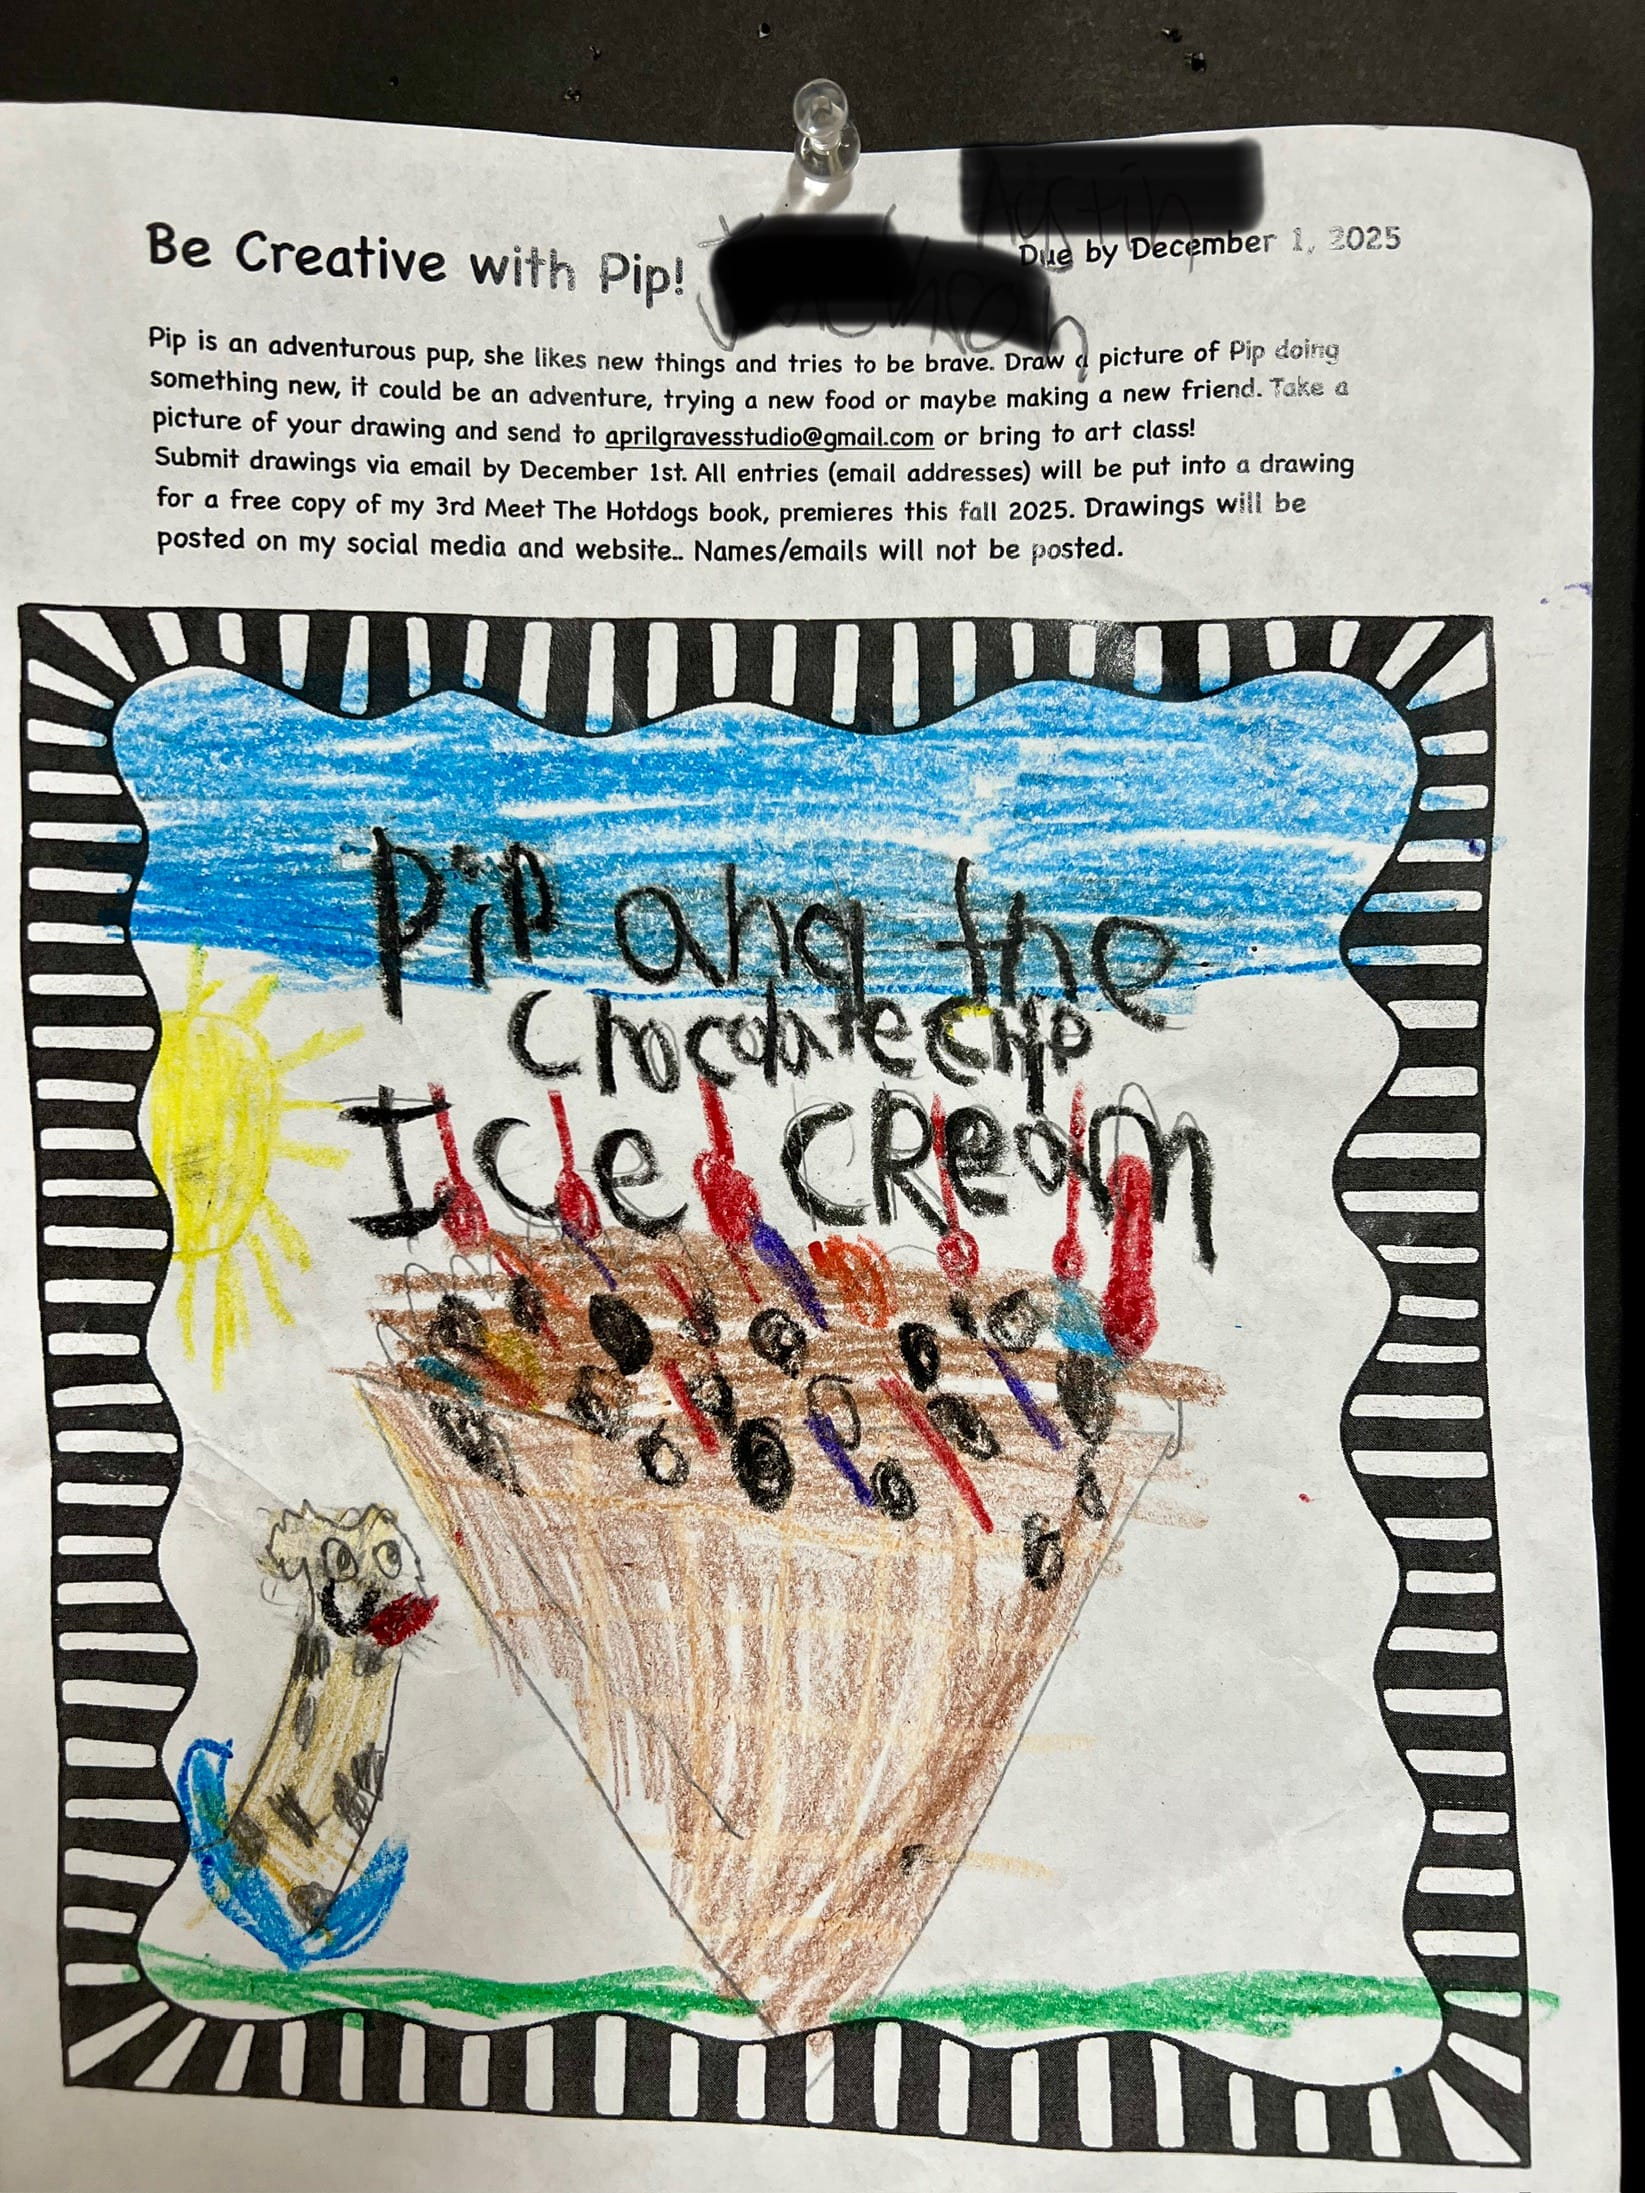 Be Creative with Pip!
Due by December 1, 2025
Pip is an adventurous pup, she likes new things and tries to be brave. Draw a picture of Pip doing
something new, it could be an adventure, trying a new food or maybe making a new friend. Take a
picture of your drawing and send to aprilgravesstudio@gmail.com or bring to art class!
Submit drawings via email by December 1st. All entries (email addresses) will be put into a drawing
for a free copy of my 3rd Meet The Hotdogs book, premieres this fall 2025. Drawings will be
posted on my social media and website.. Names/emails will not be posted.
Pip and the
Chocolate Chip
Ice CReam